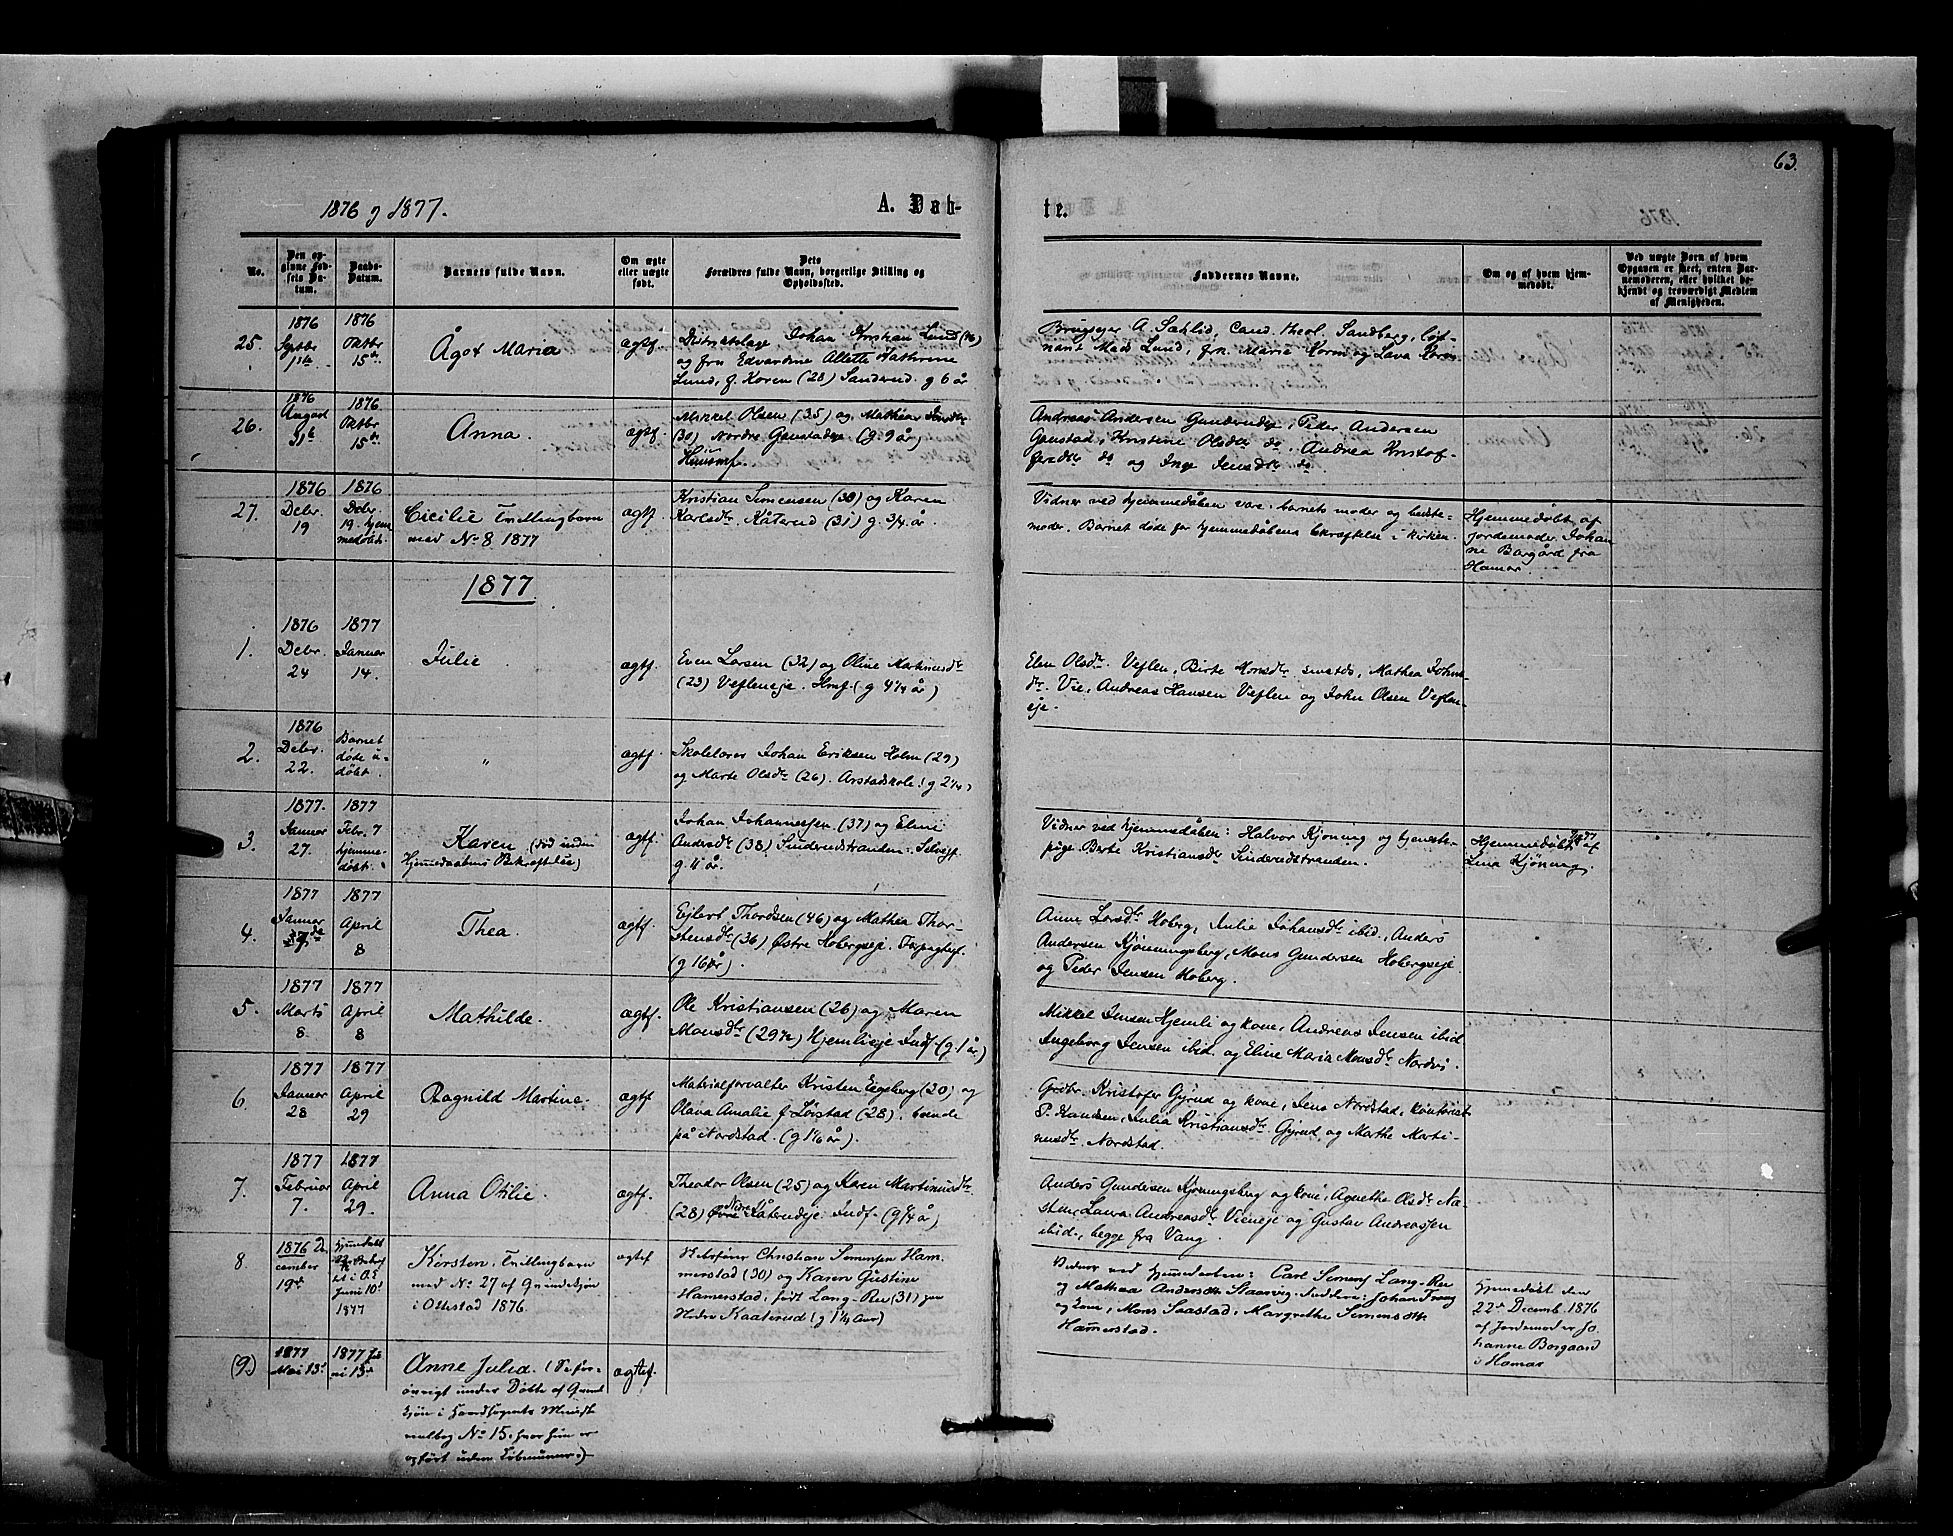 63.
1876 og 1877.
A. Døb-
te.
No.
Den op-
givne Fød-
sels Da-
tum.
Daabs-
Datum.
Barnets fulde Navn.
Om ægte
eller uægte
født.
Dets
Forældres fulde Navn, borgerlige Stilling og
Opholdssted.
Faddernes Navne.
Om og af hvem hjem-
medøbt.
Ved uægte Børn af hvem
Opgaven er skeet, enten Bar-
nemoderen, eller hvilket be-
kjendt og troværdigt Medlem
af Menigheden.
25.
1876
Septbr
1876
Oktbr
15de
Ågot Maria
ægtf.
Distriktslæge Johan Kristian Lund
og fru Edvardine Alette Kathrine
Lund, f. Koren (28) Sandvud. g 6 år
Brugseier A. Sæhlid, Cand. theol. Sandberg, løit-
nant Mads Lund, frk. Maria Koren og Lava Koren
26.
1876
August
31te
1876
Oktbr
15de
Anna.
ægtf.
Mikkel Olsen (35) og Mathea
(30) Nordre Gaustadeje. (g. 9 år)
Husmf.
Andreas Andersen Gunderudeje, Peder Andersen
Gaustad, Kristine Olsdtr do, Andrea Kristof-
fersdtr do og Inge Jensdtr do
27.
1876
Debr.
19
1876
Debr.
19. hjem-
medøbt.
Cicilie Tvillingbarn
med No 8 1877
ægtf.
Kristian Simensen (30) og Karen
Karlsdtr Kåterud (31) g. 3/4 år.
Vidner ved hjemmedåben var: barnets moder og bedste-
moder. Barnet døde før hjemmedåbens bekræftelse i kirken.
Hjemmedøbt af
jordemoder Johan-
ne Borgård fra
Hamar.
1877
1.
1876
Debr.
24
1877
Januar
14.
Julie
ægtf.
Even Larsen (32) og Oline Martinusdtr
(23) Vefleneje. Hmf. (g 4 1/4 år)
Elen Olsdtr. Veflen, Birte Monsdtr smstds, Mathea Johns-
dtr. Vie, Andreas Hansen Veflen og John Olsen Veflen-
eje.
2.
1876
Debr.
22.
Barnet
døde u-
døbt.
"
ægtf.
Skolelærer Johan Eriksen Holm (29)
og Marte Olsdtr (26). Arstadskole. (g 2 1/4)
3.
1877.
Januar
27.
1877
Febr. 7
hjemme-
døbt.
Karen (død inden
Hjemmedaabens Bekræftelse)
ægtf.
Johan Johannessen (37) og Eline
Andersdtr (38) Sinderudstranden. Selvejf.
g. 11 år.
Vidner ved hjemmedåben: Halvor Kjøning og tjeneste-
pige Birte Kristiansdtr Sinderudstranden.
Hjemmedøbt af
Lina Kjøning.
4.
1877
Januar
1877
April
8
Thea.
ægtf.
Ejlert Thordsen (46) og Mathea Thor-
stensdtr (36) Østre Hobergseje. Forpagterf.
(g 16 år).
Anne Larsdtr Hoberg, Julia Johansdtr ibid., Anders
Andersen Kjønningsberg, Mons Gundersen Hobergseje
og Peder Jensen Hoberg.
5.
1877
Marts
8.
1877
April
8
Mathilde.
ægtf.
Ole Kristiansen (26) og Maren
Monsdtr (29 1/2) Hjemlieje Indf (g. 1 år)
Mikkel Jensen Hjemli og kone, Andreas Jensen ibid
Ingeborg Jensen ibid. og Eline Maria Monsdtr Nordvi.
6.
1877
Januar
28
1877
April
29
Ragnild Martine.
ægtf.
Materialforvalter Kristen Eigsberg (30) og
Olava Amalie f. Løistad (28). boende
på Nordstad. (g 1 1/6 år).
Grdbr. Kristofer Gyrud og kone, Jens Nordstad, kontorist
P. Knudsen, Julia Kristiansdtr Gyrud, og Mathe Marti-
nusdtr Nordstad.
7.
1877
Februar
7.
1877
April
29.
Anna Otilie.
ægtf.
Theodor Olsen (25) og Karen Martinusdtr
(28) Nedre Kåterudeje. Indf. (g 1/4 år)
Anders Gundersen Kjønningsberg og kone, Agnethe Olsdtr Næ-
sten, Laura Andreasdtr Vieneje og Gustav Andreassen
ibid., begge fra Vang.
8.
1876 De-
cember
19de
Juni 10de
1877
Kirsten, Tvillingbarn
med No 27 af Qvindekjøn
i Ottestad 1876.
ægtef.
Christian Simensen Ham-
merstad (30) og Karen Gustine
Hamerstad, født Lang-Ree (31) paa
Nedre Kaaterud (g 1 1/4 Aar)
Vidner ved Hjemmedaaben: Carl Simens. Lang-Ree
og Mathea Andersdtr Staarvig. Faddere: Johan Frang
og kone, Mons Saastad, Margrethe Simensdtr
Hamerstad.
Hjemmedøbt den
22de Decemb. 1876
af Jordemoder Jo-
hanne Borgaard
i Hamar
(9.)
1877
Mai 13de
1877 Ju-
ni 13de
Anne Julia. (Se før-
øvrigt under Døbte af Qvind-
kjøn i Hovedsognets Ministe-
rialbog No 15, hvor hun er
opført uden Løbenummer.)
ægtef.